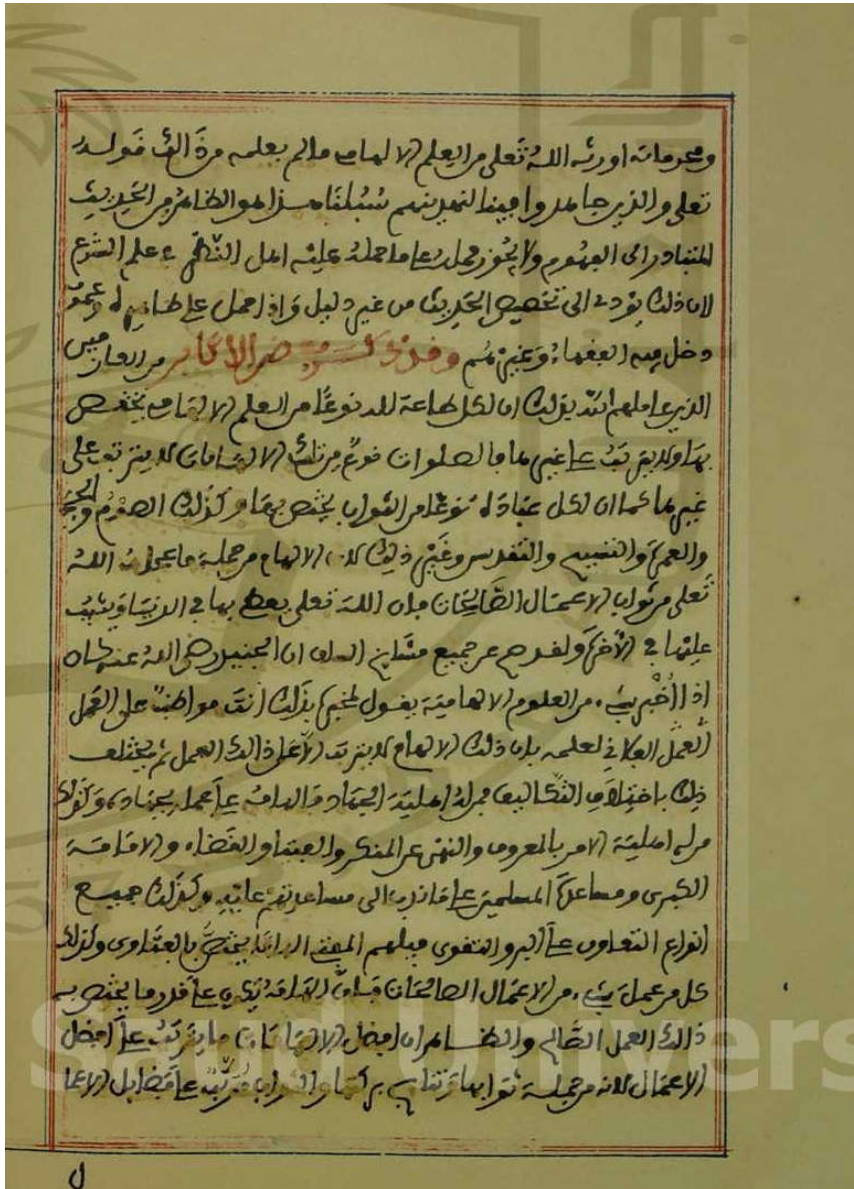 ومحرماته اورثه اللهُ تَعلى من العلم الالهامى ما لم يعلمه مرَّة الى قَوله
تعلى والذين جاهدوا فينا لنهدينهم سُبُلنَا هذا هو الظاهرُ من الحَديث
المتبادر الى الفهوم ولا يجُوز حمله على ما حملهُ عليْه اهل النَّظر في علم الشرع
لان ذلك يؤدى الى تخصيص الحَديث من غير دليل وَاذا حمل على ظاهره وعمومه
دخل فيه الفقهاءُ وَغيرُهُم وقد ذكر بعض الأكابر من العارفين
الذين املهم الله لذلك ان لكل طاعة لله نوعًا من العلم الالهامى يختص
بهَا ولا يترتبُ على غيرها فالصلوات نوعٌ من تلك الالهامات لا يترتب على
غيرها كما ان لكل عبَادة نوعًا من الثواب يختص بهَا وكذَلك الصوْم والحج
والعمرَة والتسبيح والتقديس وغَيْر ذلك لان الالهام من جملة ما عجله اللهُ
تَعلى من ثواب الاعمَال الصَّالحَات فان اللهَ تعلى يعطى بها في الدنيَا ويثيبُ
عليْها في الاخرَة ولقد صح عن جميع مشَايخ السلف ان الجنيد رضى اللهُ عنه كان
اذا اُخْبر بشىء من العلوم الالهامية يقول لمخبره بذَلك انت مواظبٌ على العَمل
العمَل الفلانى لعلمه بان ذلك الالهام لا يترتب الاّ على ذالك العمل ثم يختلف
ذلك باختِلَافِ التَّكاليف فمن لهُ اهليَّة الجهَاد فالهامهُ على عمله بجهَاده وَكذلك
من له اهليَّة الامر بالمعروف والنهْى عن المنكر والفتيا والقَضاء والامَامَة
الكبرى ومساعدَة المسلمين على ما ندب الى مساعدتهم عليْه وكذلك جميع
انواع التعاون على البر والتقوى فيلهم المفتى الهامًا يختصُّ بالفتَاوى وكذلك
كل من عمل بشىء من الاعمَال الصالحَات فان الهامَهُ يكون على قدر ما يختص به
ذالك العمل الصَّالح والظاهر ان افضل الالهَامَات ما يترتبُ على افضل
الاعمَال لانه من جملة ثوابها وَنتايج بركتها والثواب مُرتَّبٌ على فضَايل الاعما
ل